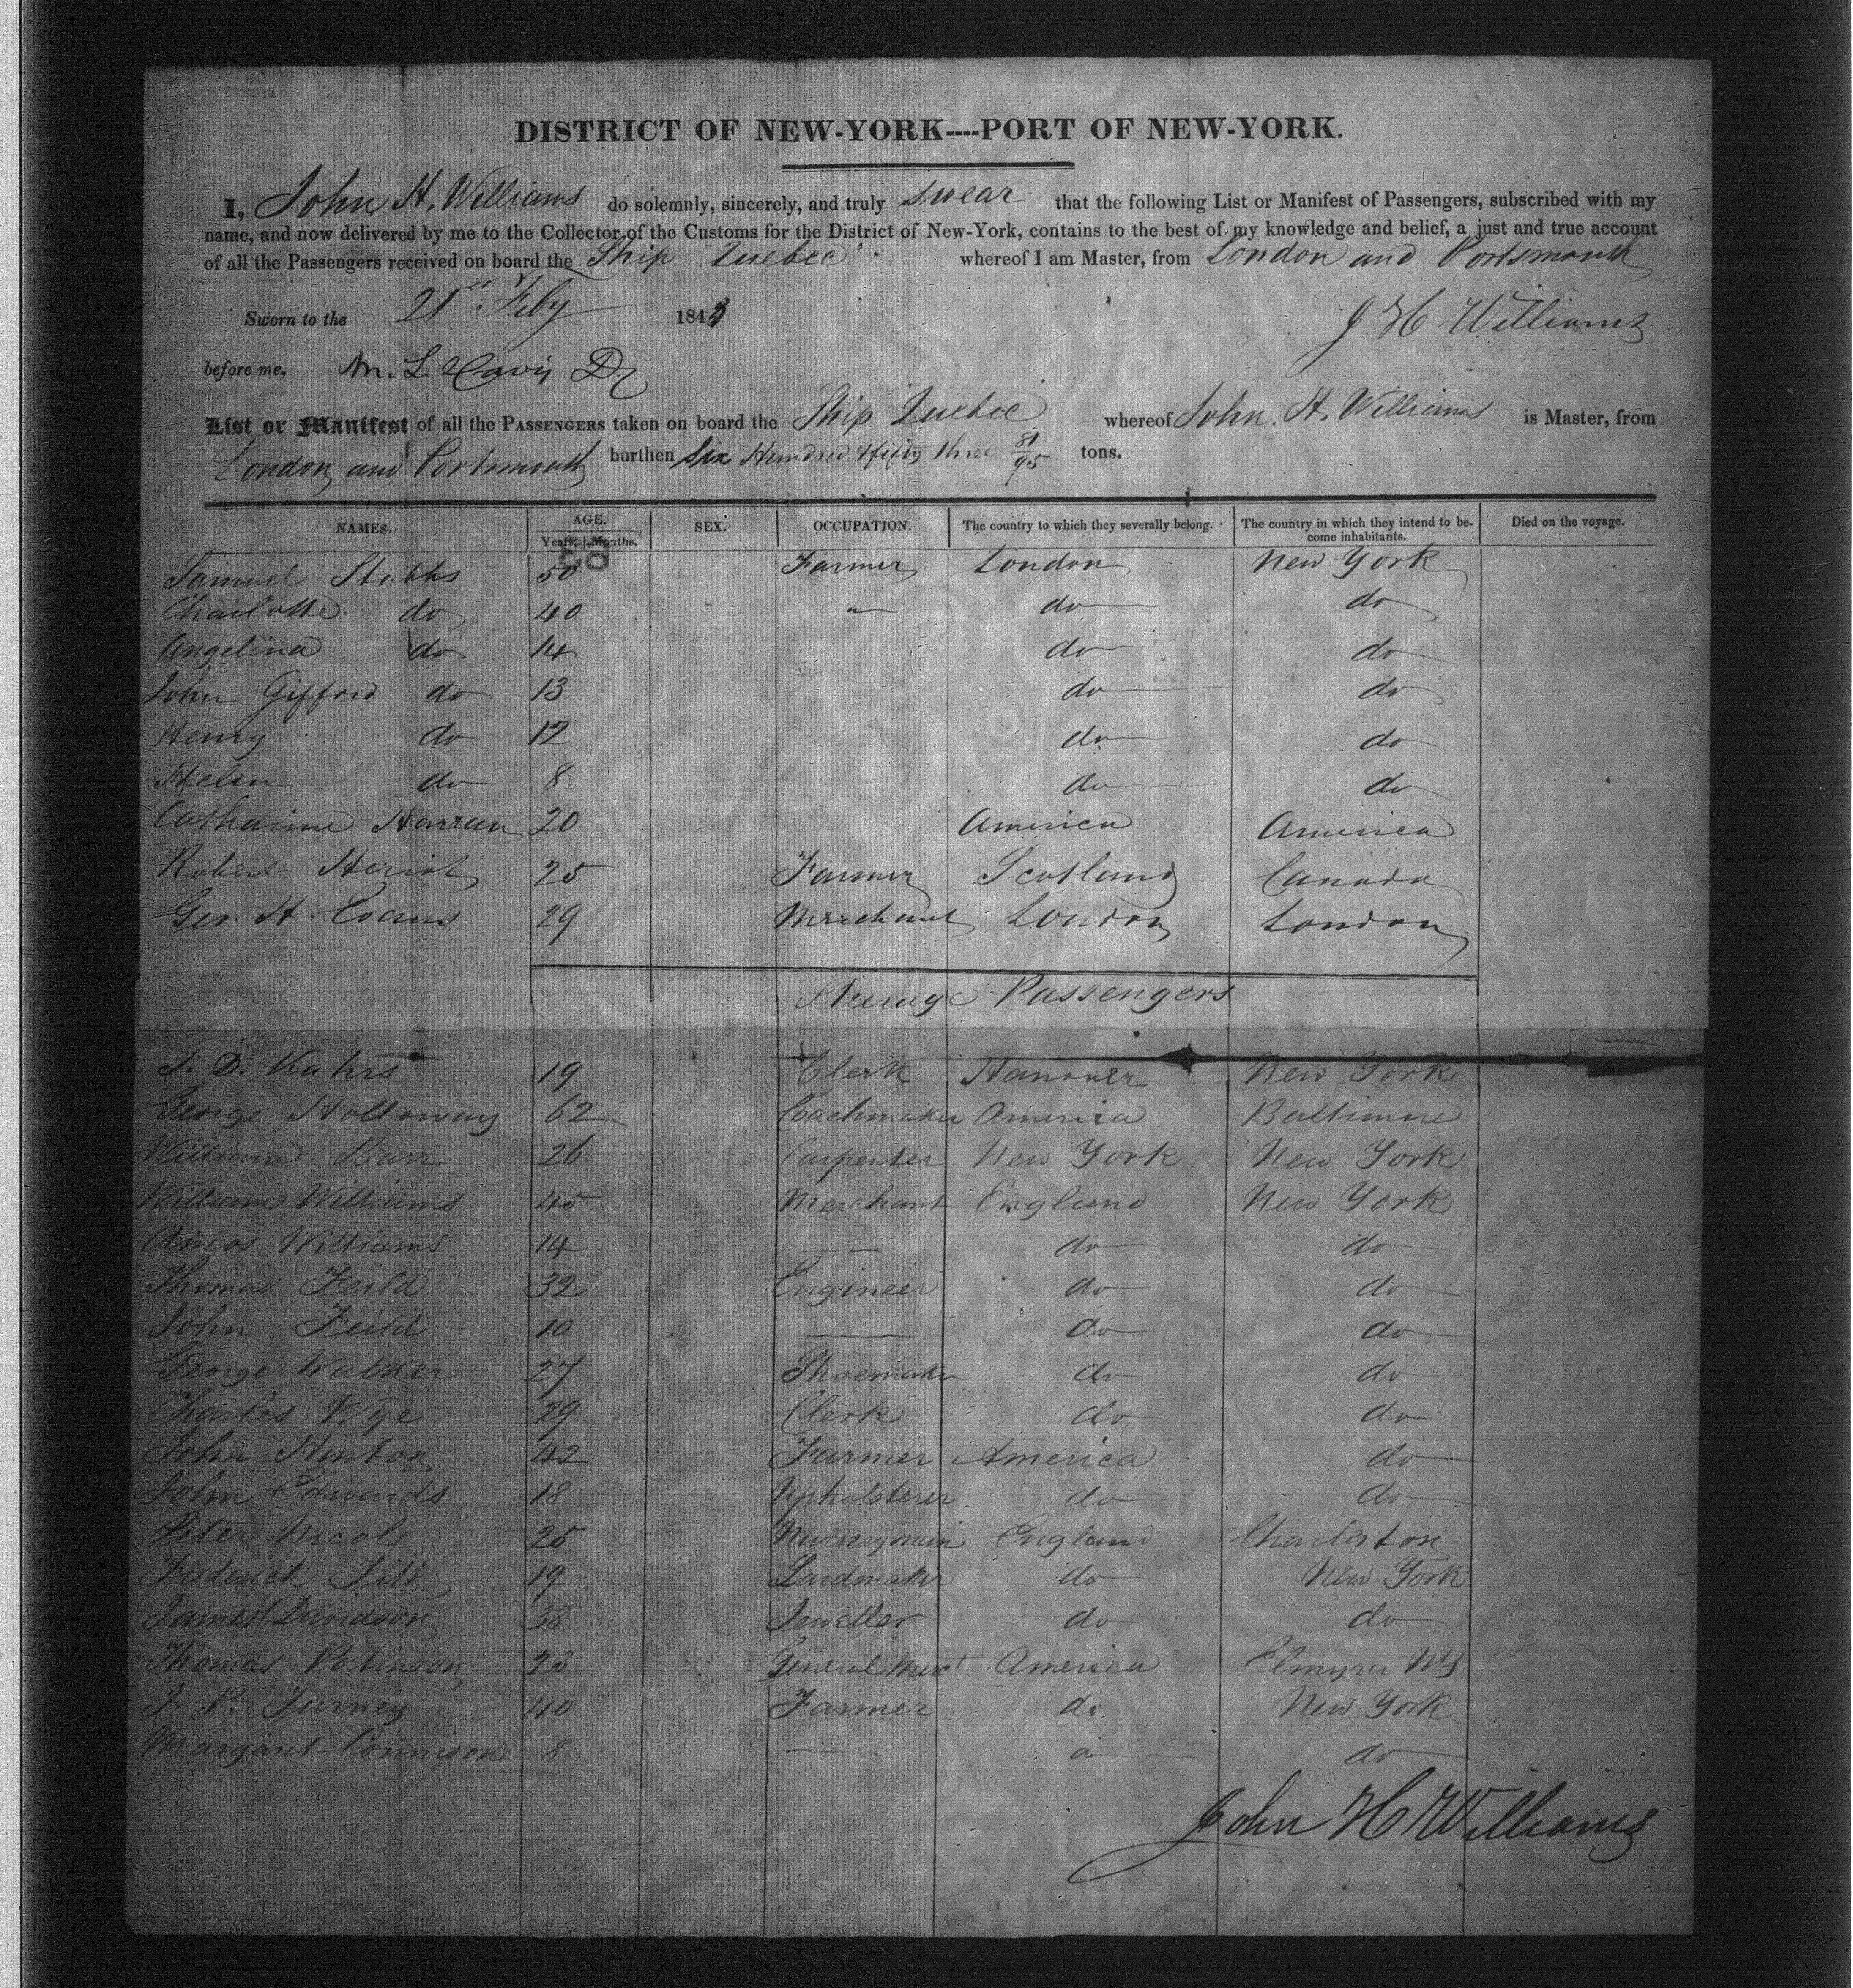 DISTRICT OF NEW-YORK----PORT OF NEW-YORK.
I, John H. Williams do solemnly, sincerely, and truly swear that the following List or Manifest of Passengers, subscribed with my
name, and now delivered by me to the Collector of the Customs for the District of New-York, contains to the best of my knowledge and belief, a just and true account
of all the Passengers received on board the Ship Quebec whereof I am Master, from London and Portsmouth
Sworn to the 21st Feby 1843 J H Williams
before me, M. L. Davis
List or Manifest of all the PASSENGERS taken on board the Ship Quebec whereof John. H. Williams is Master, from
London and Portsmouth burthen Six Hundred & fifty three 81/95 tons.
NAMES. AGE. SEX. OCCUPATION. The country to which they severally belong. The country in which they intend to be- Died on the voyage.
Years. Months. come inhabitants.
Samuel Stubbs 50 Farmer London New York
Charlotte do 40 do do
Angelina do 14 do do
John Gifford do 13 do do
Henry do 12 do do
Helen do 8 do do
Catharine Harran 20 America America
Robert Heriot 25 Farmer Scotland Canada
Geo. H. Evans 29 Merchant London London
Steerage Passengers
J. D. Kahrs 19 Clerk Hanover New York
George Holloway 62 Coachmaker America Baltimore
William Barr 26 Carpenter New York New York
William Williams 45 Merchant England New York
Amos Williams 14 do do
Thomas Feild 32 Engineer do do
John Feild 10 do do
George Walker 27 Shoemaker do do
Charles Wye 29 Clerk do do
John Hinton 42 Farmer America do
John Edwards 18 Upholsterer do do
Peter Nicol 25 Nurseryman England Charleston
Frederick 19 do New York
James Davidson 38 Jeweller do do
Thomas Patinson 23 General Merct America Elmyra NY
J. P. Turney 40 Farmer do New York
Margaret Connison 8 do
John H Williams